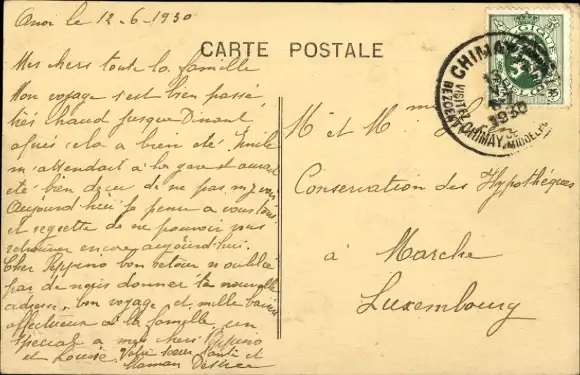 le 12-6-1930
CARTE POSTALE
Mes chers toute la famille
Mon voyage s'est bien passé
très chaud jusque Dinant
après cela a bien été. Emile
m'attendait à la gare et aurait
été bien deçu de ne pas m'y voir
Aujourd'hui je pense a vous tous
et regrette de ne pouvoir vous
retrouver encore aujourd'hui.
Cher Peppino bon retour n'oublie
pas de nous donner ta nouvelle
adresse. bon voyage et mille baisers
affectueux à la famille un
special a mes chers Peppino
et Louise. Votre soeur tante et
Maman Désirée
CHIMAY
1930
VISITEZ
CHIMAY
BELGIQUE
M et Mme
Conservation des Hypothèques
à Marche
Luxembourg